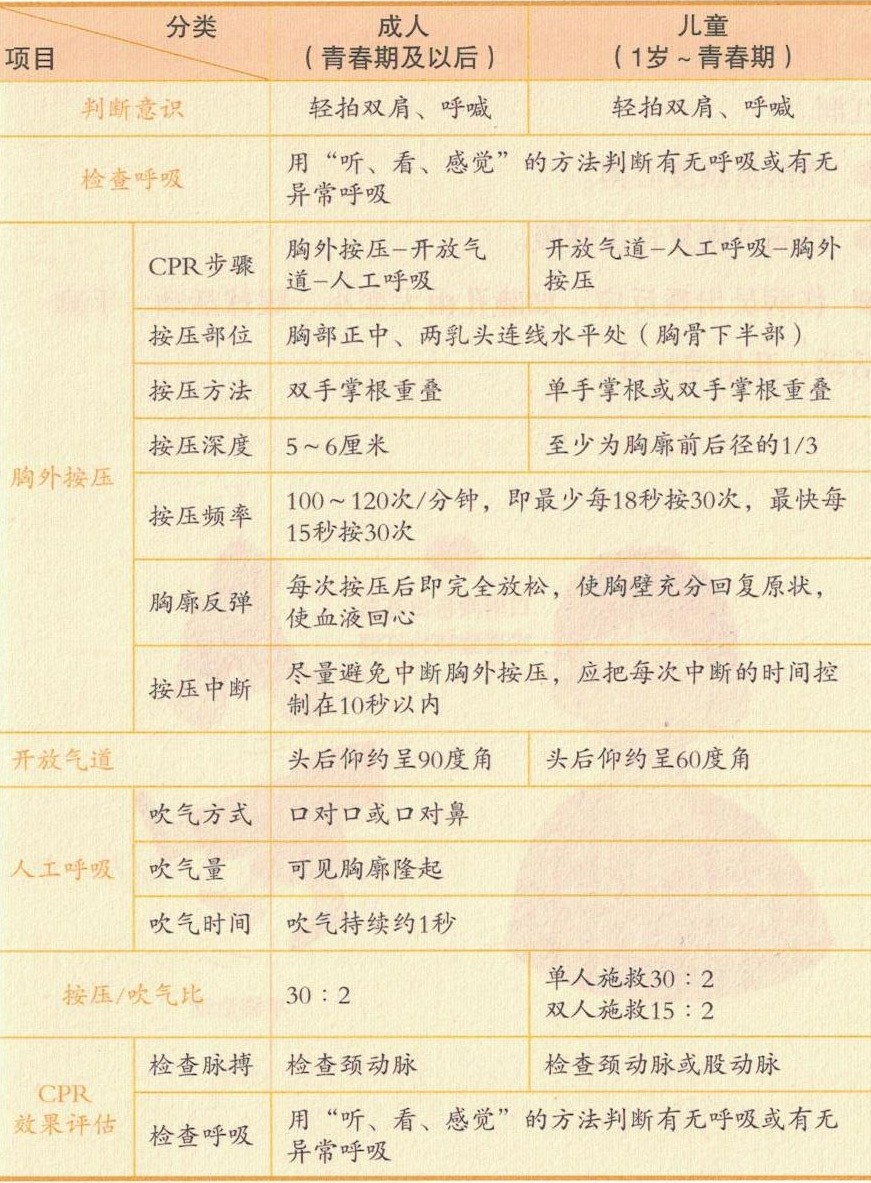 分类
项目
成人
（青春期及以后）
儿童
（1岁~青春期）
判断意识
轻拍双肩、呼喊
轻拍双肩、呼喊
检查呼吸
用“听、看、感觉”的方法判断有无呼吸或有无
异常呼吸
胸外按压
CPR步骤
胸外按压-开放气
道-人工呼吸
开放气道-人工呼吸-胸外
按压
按压部位
胸部正中、两乳头连线水平处（胸骨下半部）
按压方法
双手掌根重叠
单手掌根或双手掌根重叠
按压深度
5~6厘米
至少为胸廓前后径的1/3
按压频率
100~120次/分钟，即最少每18秒按30次，最快每
15秒按30次
胸廓反弹
每次按压后即完全放松，使胸壁充分回复原状，
使血液回心
按压中断
尽量避免中断胸外按压，应把每次中断的时间控
制在10秒以内
开放气道
头后仰约呈90度角
头后仰约呈60度角
人工呼吸
吹气方式
口对口或口对鼻
吹气量
可见胸廓隆起
吹气时间
吹气持续约1秒
按压/吹气比
30：2
单人施救30：2
双人施救15：2
CPR
效果评估
检查脉搏
检查颈动脉
检查颈动脉或股动脉
检查呼吸
用“听、看、感觉”的方法判断有无呼吸或有无
异常呼吸